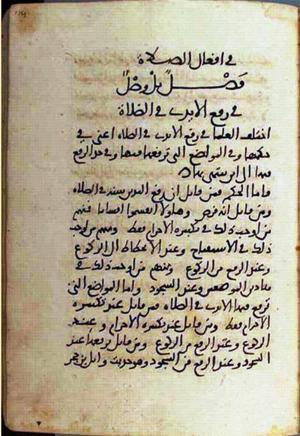 في افعال الصلاة
فصل بل وصل
في رفع الايدي في الصلاة
اختلف العلما في رفع الايدي في الصلاة اعني في
حكمها وفي المواضع التي ترفعها فيها وفي حد الرفع
فيها الى اين ينتهي بها
فاما الحكم فمن قايل ان رفع اليدين سنة في الصلاة
ومن قايل انه فرض وهاولا انقسموا اقساما فمنهم
من اوجب ذلك في تكبيرة الاحرام فقط ومنهم من اوجب
ذلك في الاستفتاح وعند الانحطاط الى الركوع
وعند الرفع من الركوع ومنهم من اوجب ذلك في
هاذين الموضعين وعند السجود واما المواضع التي
ترفع فيها الايدي في الصلاة فمن قايل عند تكبيرة
الاحرام فقط ومن قايل عند تكبيرة الاحرام وعند
الركوع وعند الرفع من الركوع ومن قايل يرفعها عند
السجود وعند الرفع من السجود وهو حديث وايل بن حجر